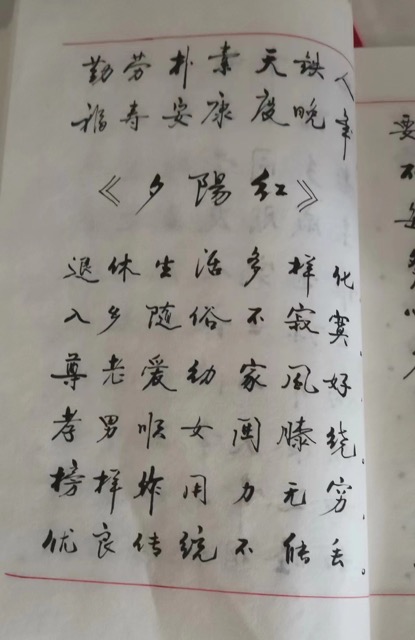 勤劳朴素天铁人
福寿安康度晚年
《夕陽红》
退休生活多样化
入乡随俗不寂寞
尊老爱幼家风好
孝男顺女围膝绕
榜样作用力无穷
优良传统不能丢。
要
不